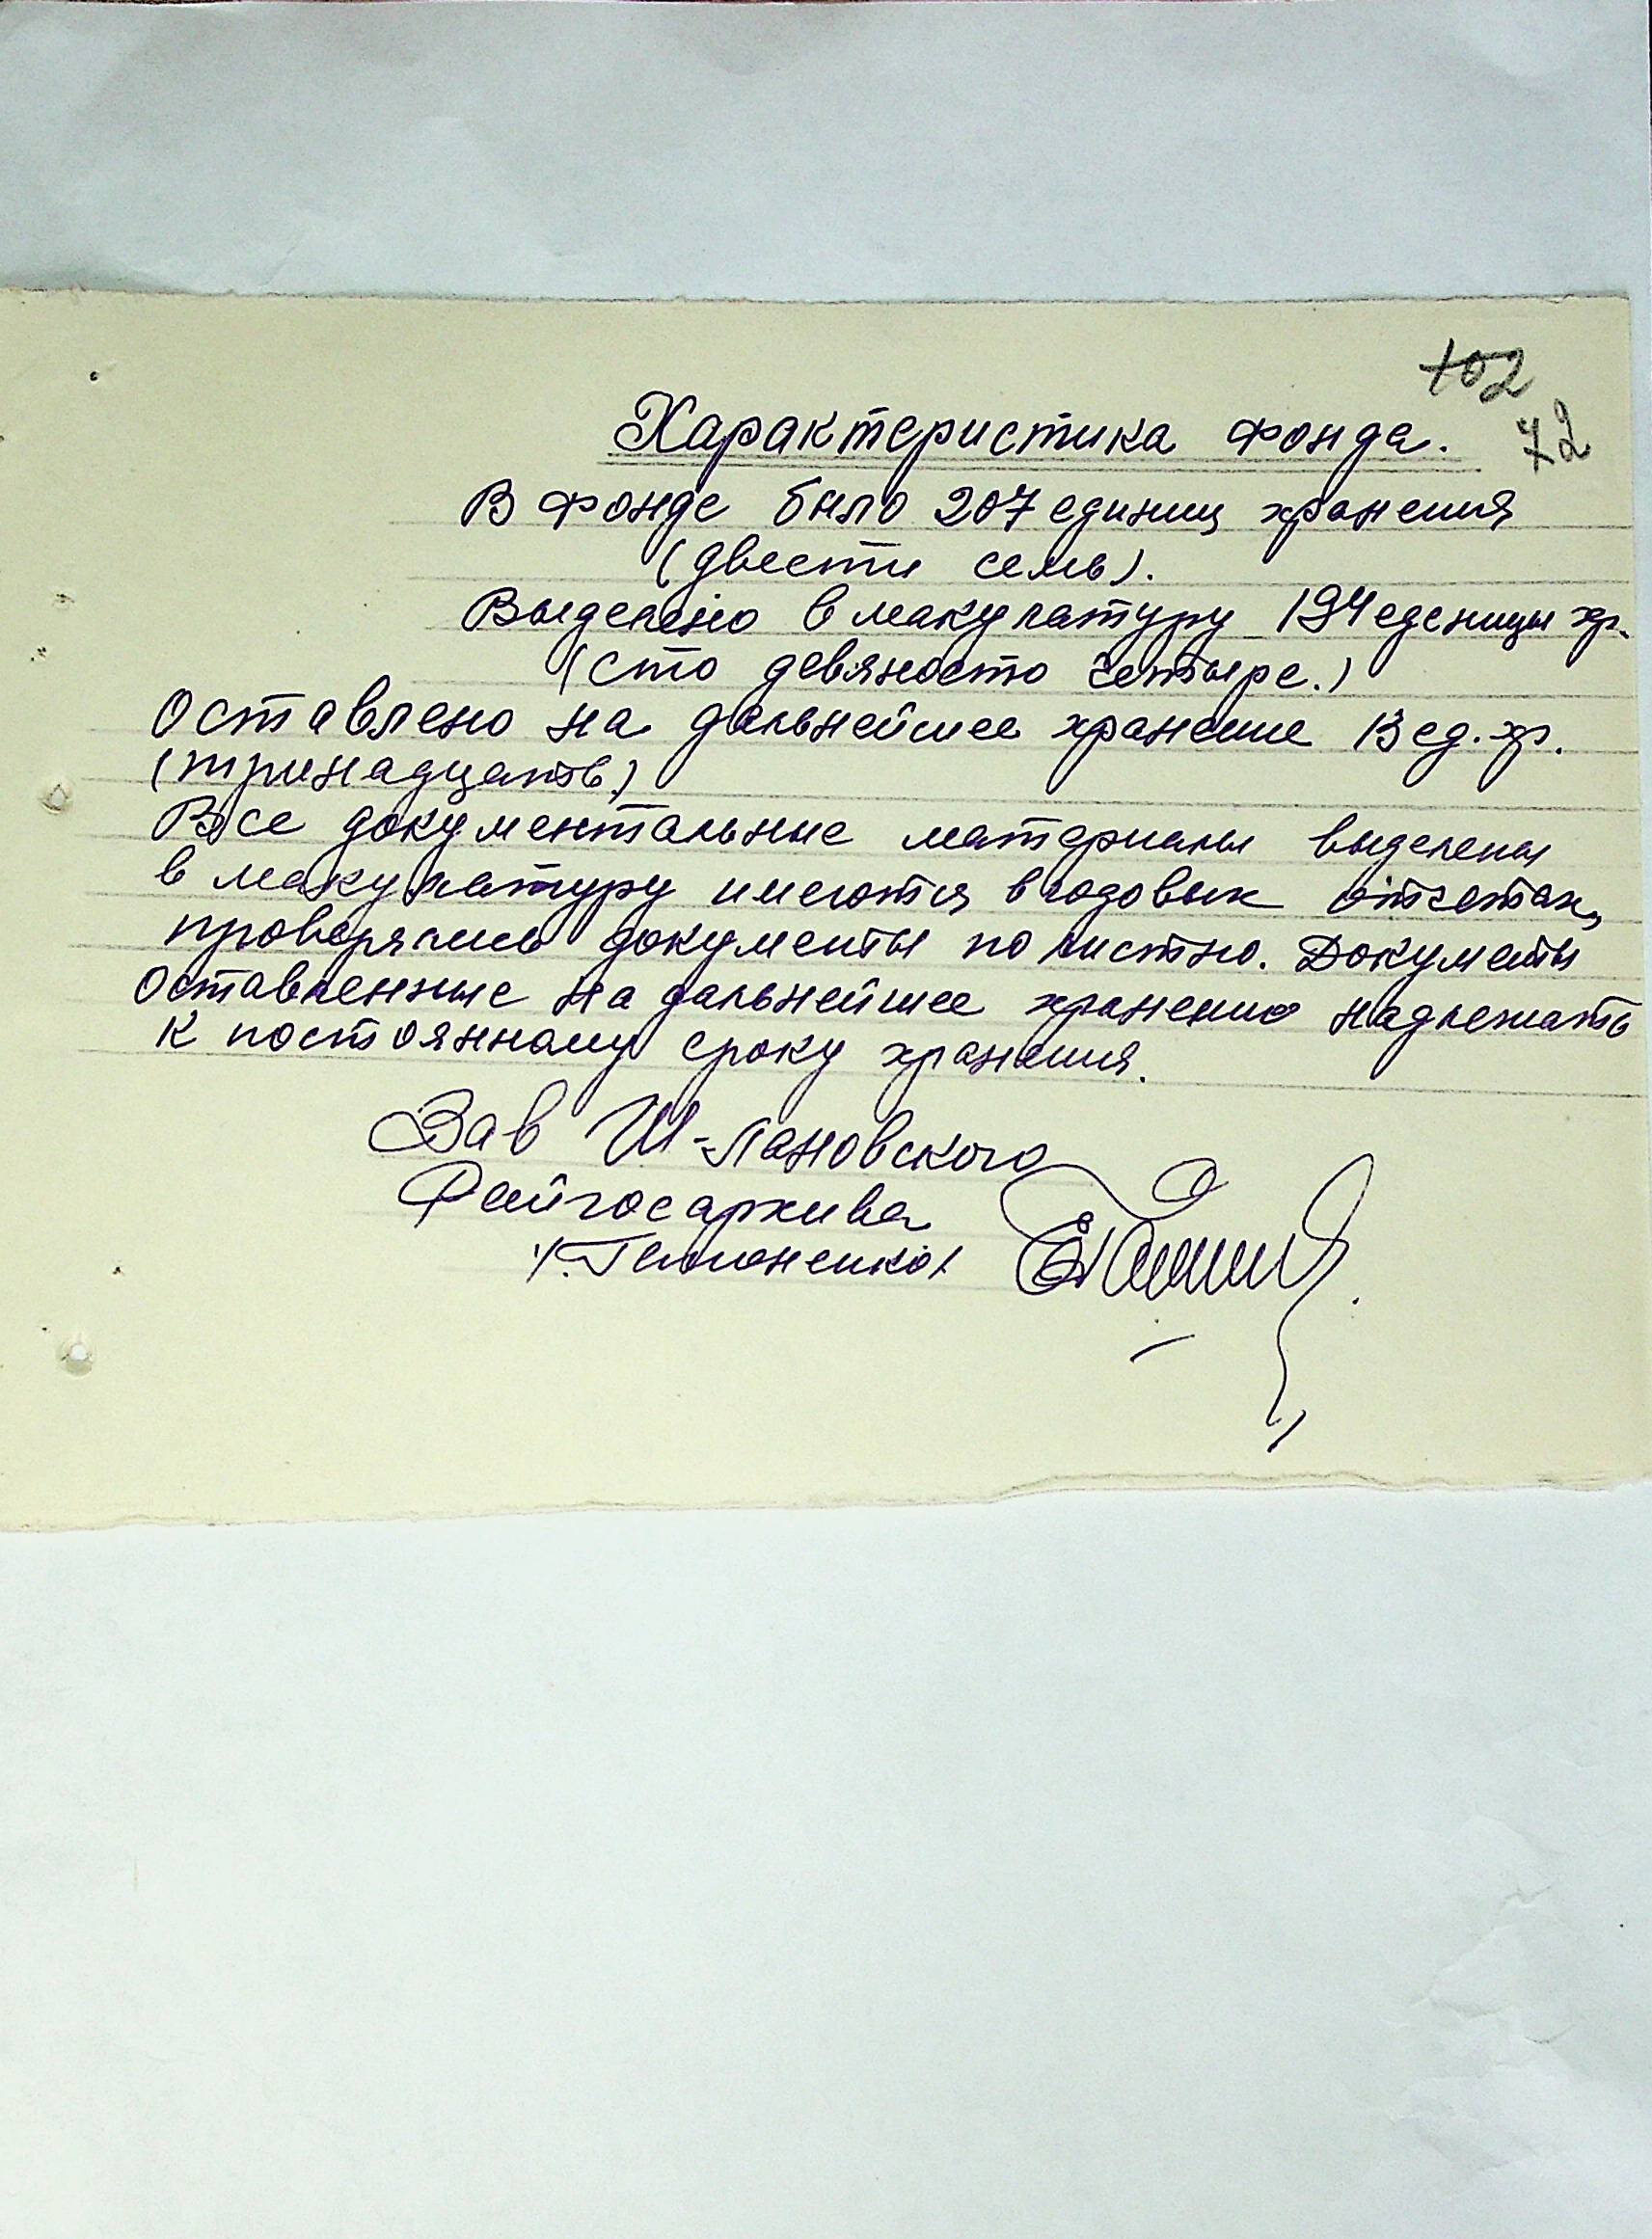 102
72
Характеристика фонда.
В фонде было 207 единиц хранения
(двести семь).
Выделено в макулатуру 194 еденицы хр.
(сто девяносто четыре.)
Оставлено на дальнейшее хранение 13 ед. хр.
(тринадцать)
Все документальные материалы выделены
в макулатуру имеются в годовых отчетах,
проверялись документы полистно. Документы
оставленные на дальнейшее хранение надлежать
к постоянному сроку хранения.
Зав Ш-Лановского
Райгосархива